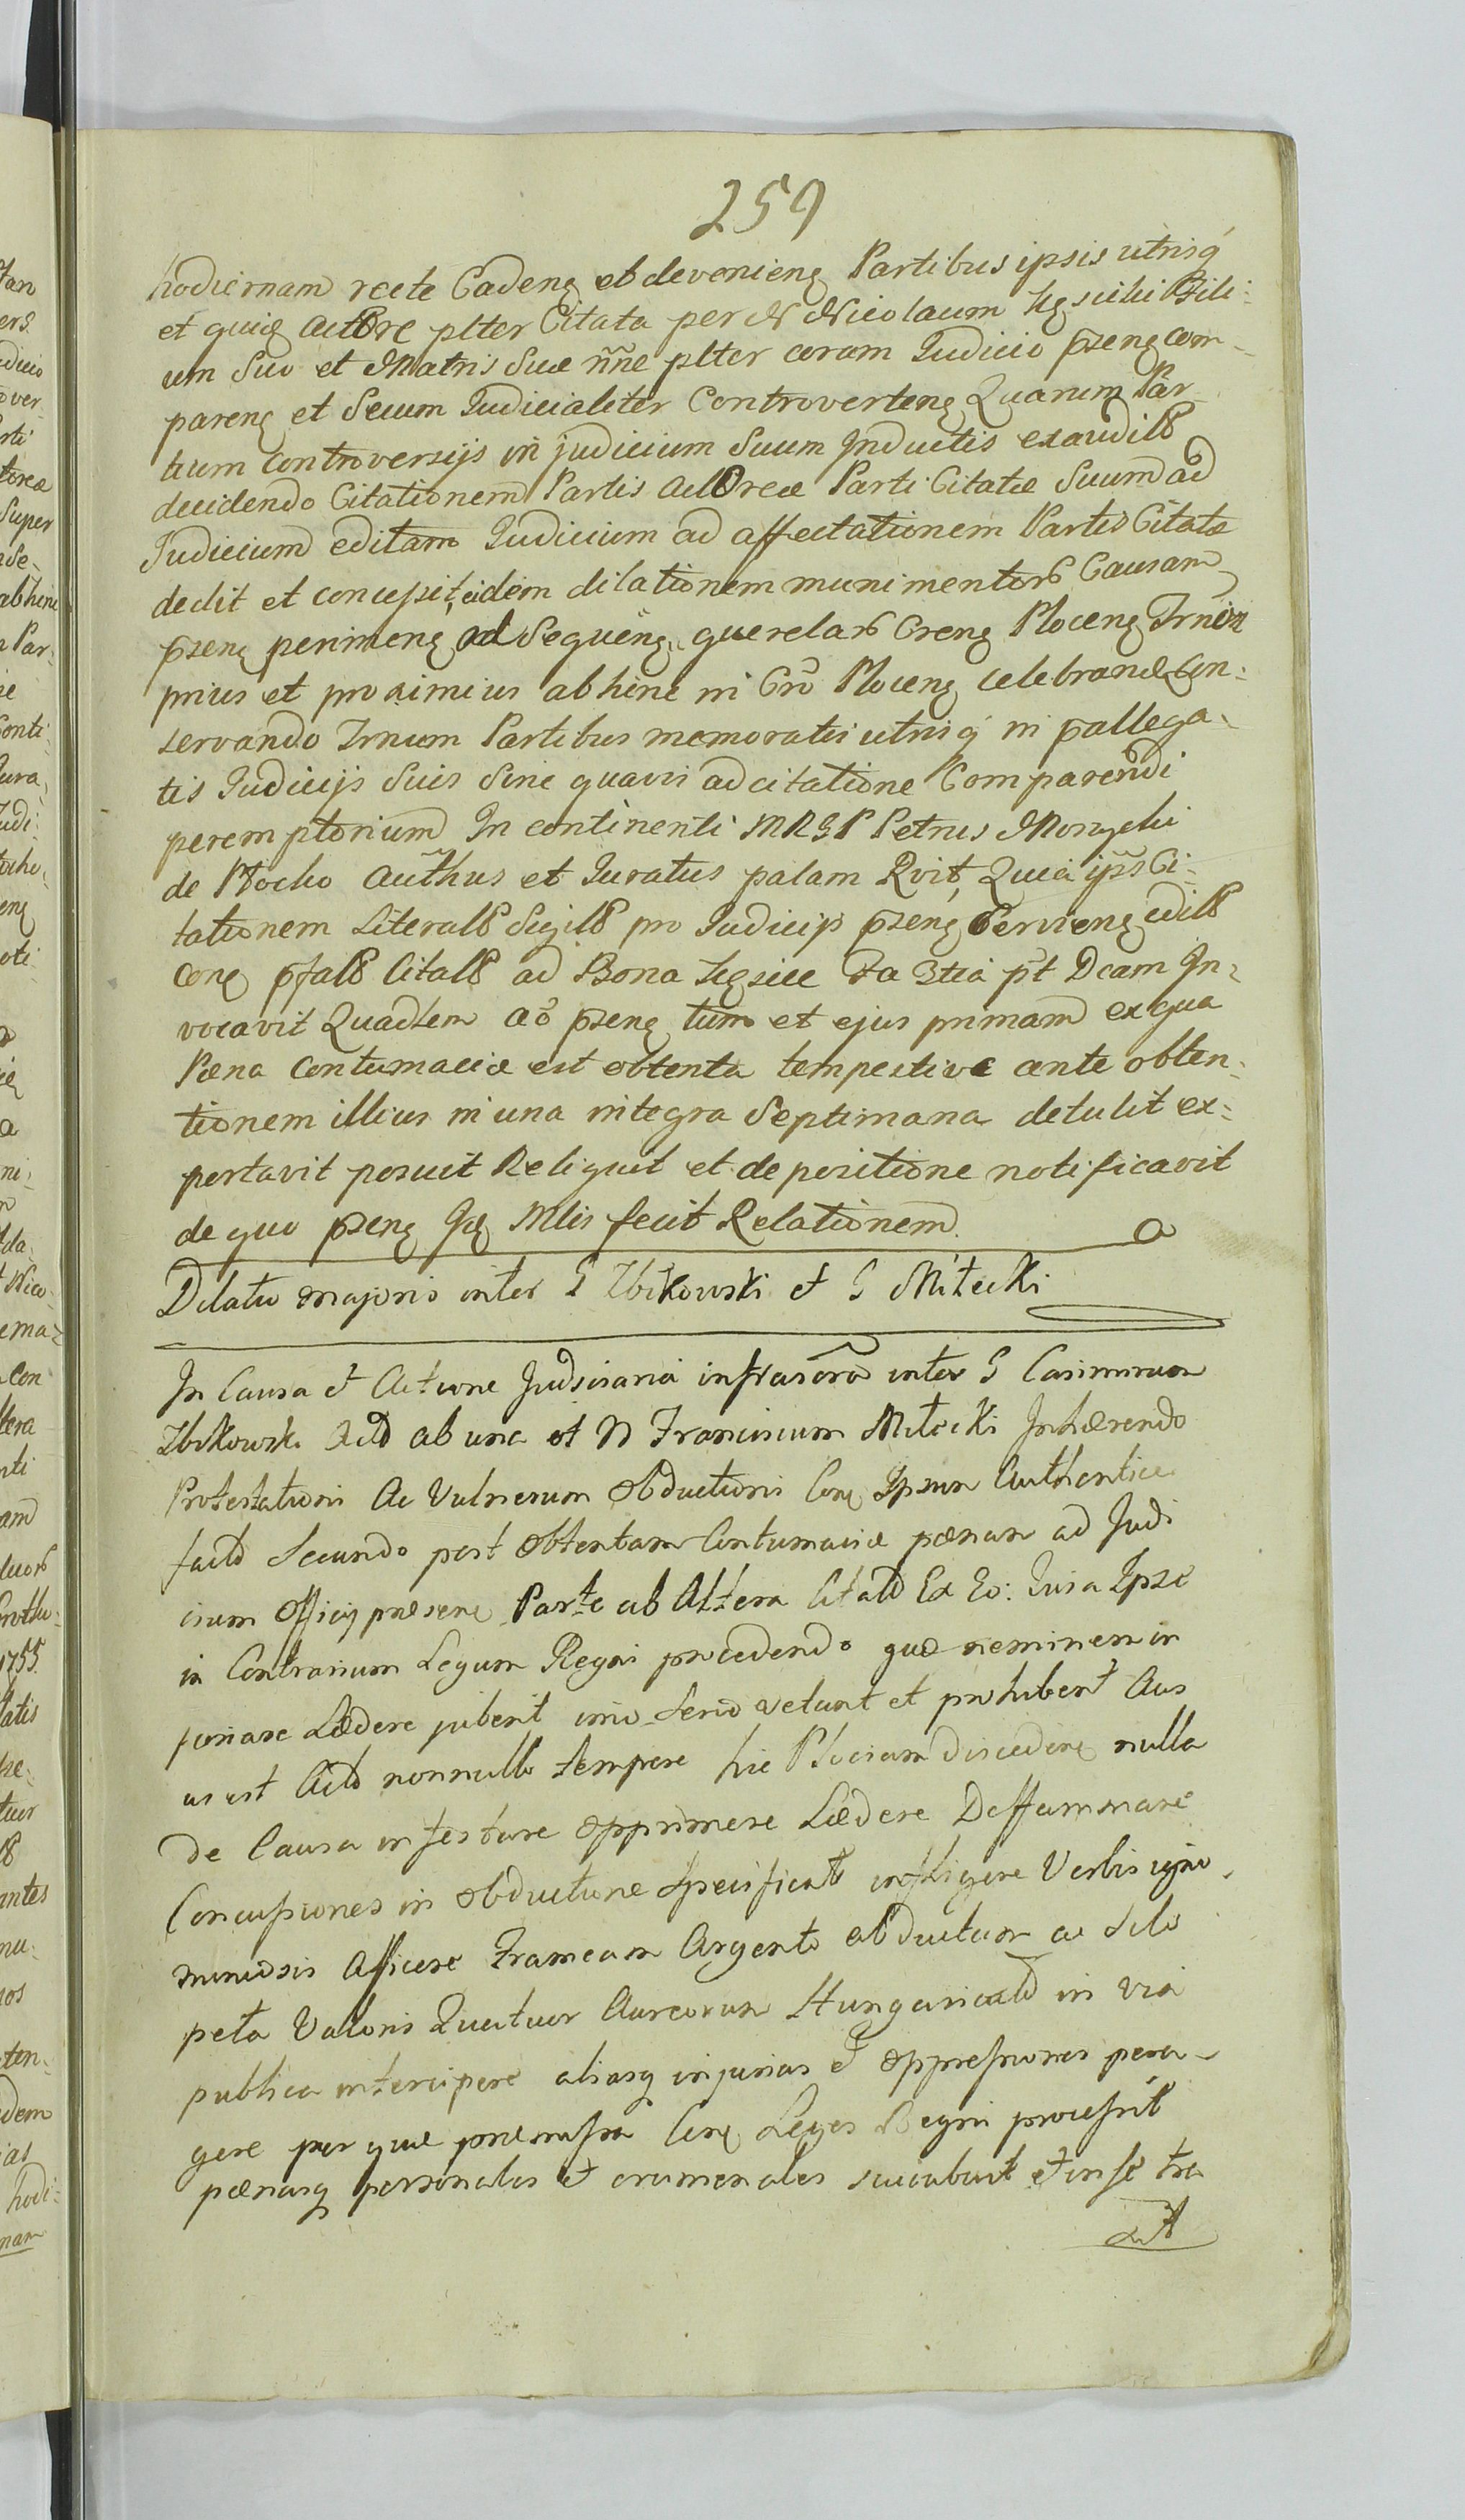 259
hodiernam recte Cadenȩ et devenienȩ Partibus ipsis utrisq́
et quidȩ Actore plter Citata per N Nicolaum
um Suo et Matris Suæ nñe plter coram Judicio p̄senȩ com-
parenȩ et Secum Judicialiter Controvertenȩ Quarum Par-
tium Controversijs in judicium Suum Inductis exaudit
decidendo Citationem Partis Actoreæ Parti Citatæ Suum ad
Judicium editam Judicium ad affectationem Partis Citatæ
dedit et concessit, eidem dilationem munimentor Causam
p̄senȩ perimenȩ ad Sequenȩ querelar Crenȩ Plocenȩ Trnos
prius et proximius abhinc in Cro Plocenȩ celebrand Con:
servando Trnum Partibus memoratis utrisq́ in p̄allega-
tis Judicijs Suis Sine quavis adcitatione Comparendi
peremptorium In continenti MRGP Petrus Morzycki
de Plocko Auth̃us et Juratus palam Rvit, Quia ip̃s Ci-
tationem Literal Sigil pro Judicijs p̄senȩ Servienȩ edit
conȩ p̄fat Citat ad Bona fa 3tia p̄t Dcam In-
vocavit Quadlem Ao p̄senȩ tum et ejus primam ex qua
Pæna Contumaciæ est obtenta tempestive ante obten-
tionem illius in una integra Septimana detulit ex-
portavit posuit Reliquit et de positione notificavit
de quo p̄senȩ Mlis fecit Relationem.
Dilatio majoris inter G Zbikowski et G Miłecki
In Causa et Actione Judiciaria infrascra inter G Casimirum
Zbikowski Act ab una et N Franciscum Miłecki Inhærendo
Protestationi Ac Vulnerum Obductioni Conȩ Ipsum Authentice
fact Secundo post Obtentam Contumaciæ pænam ad Judi
cium Officij præsenȩ Parte ab Altera Citat Ex Eo: Quia Ipse
in Contrarium Legum Regni procedendo quæ neminem in
juriare Lædere jubent imo Serio vetant et prohibent Aus
us est Act nonnullo tempore hic Plociam discedenȩ nulla
de Causa infestare Opprimere Lædere Deffammare
Concussiones in Obductione Specificat infligere Verbis igno-
miniosis Afficere Frameam Argento obductam ac
peta Valoris Quatuor Aureorum Hungaricald in via
publica intercipere aliasq injurias et oppressiones pera-
gere per quæ præmissa Conȩ Leges Regni processit
pænasq personales et crumenales succubuit et in se tra
xit